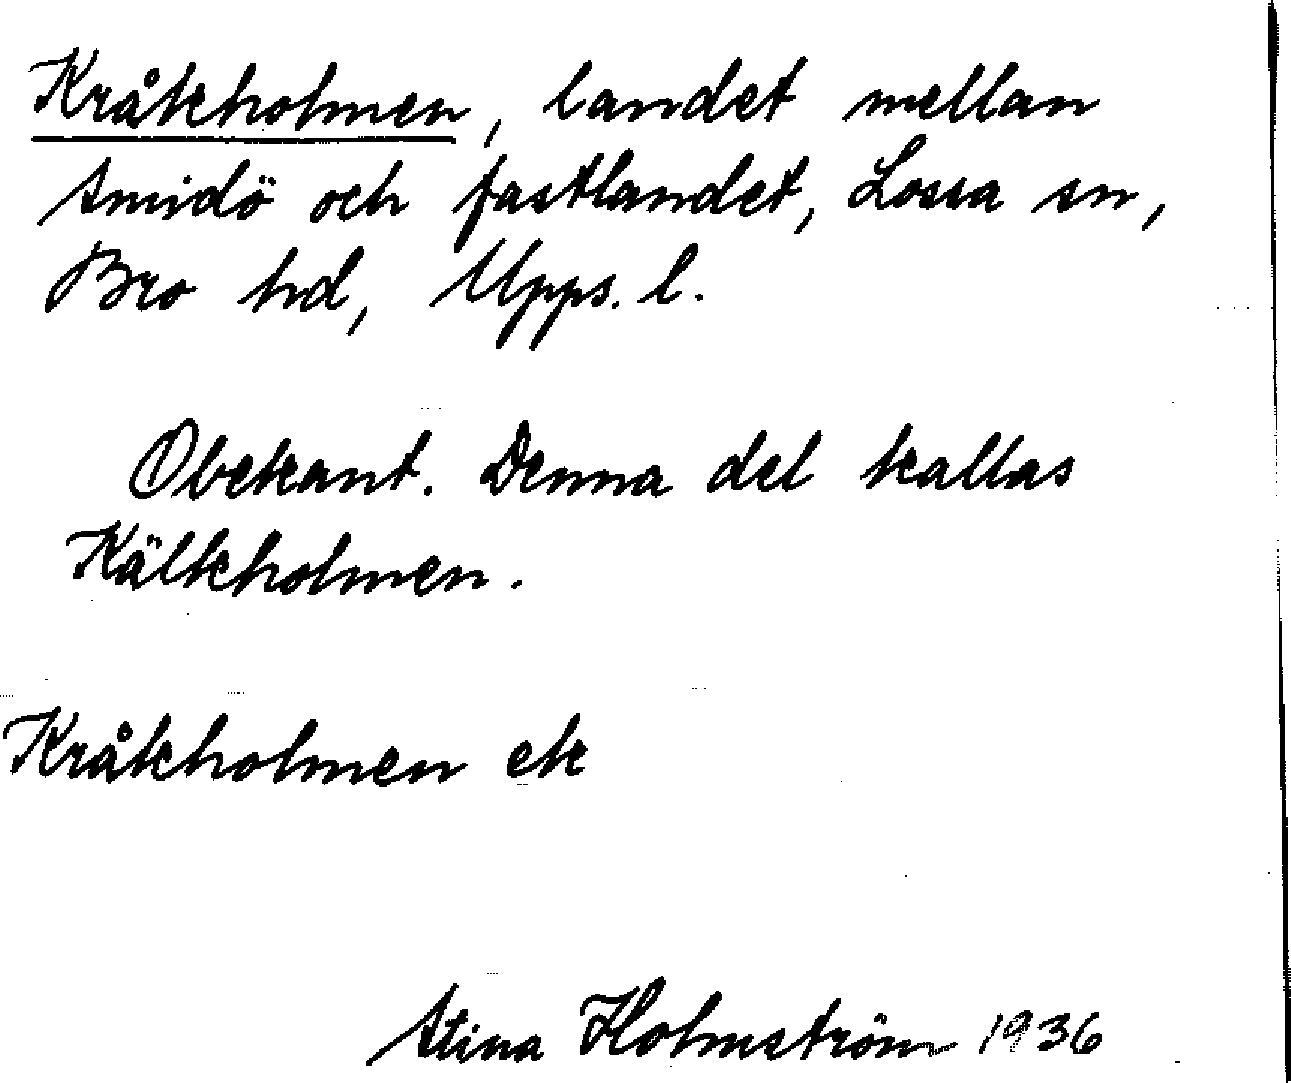 Kråkholmen, landet mellan
Smidö och fastlandet, Lossa sn,
Bro hd, Upps. l.
Obekant. Denna del kallas
Kälkholmen.
Kråkholmen ek
Stina Holmström 1936